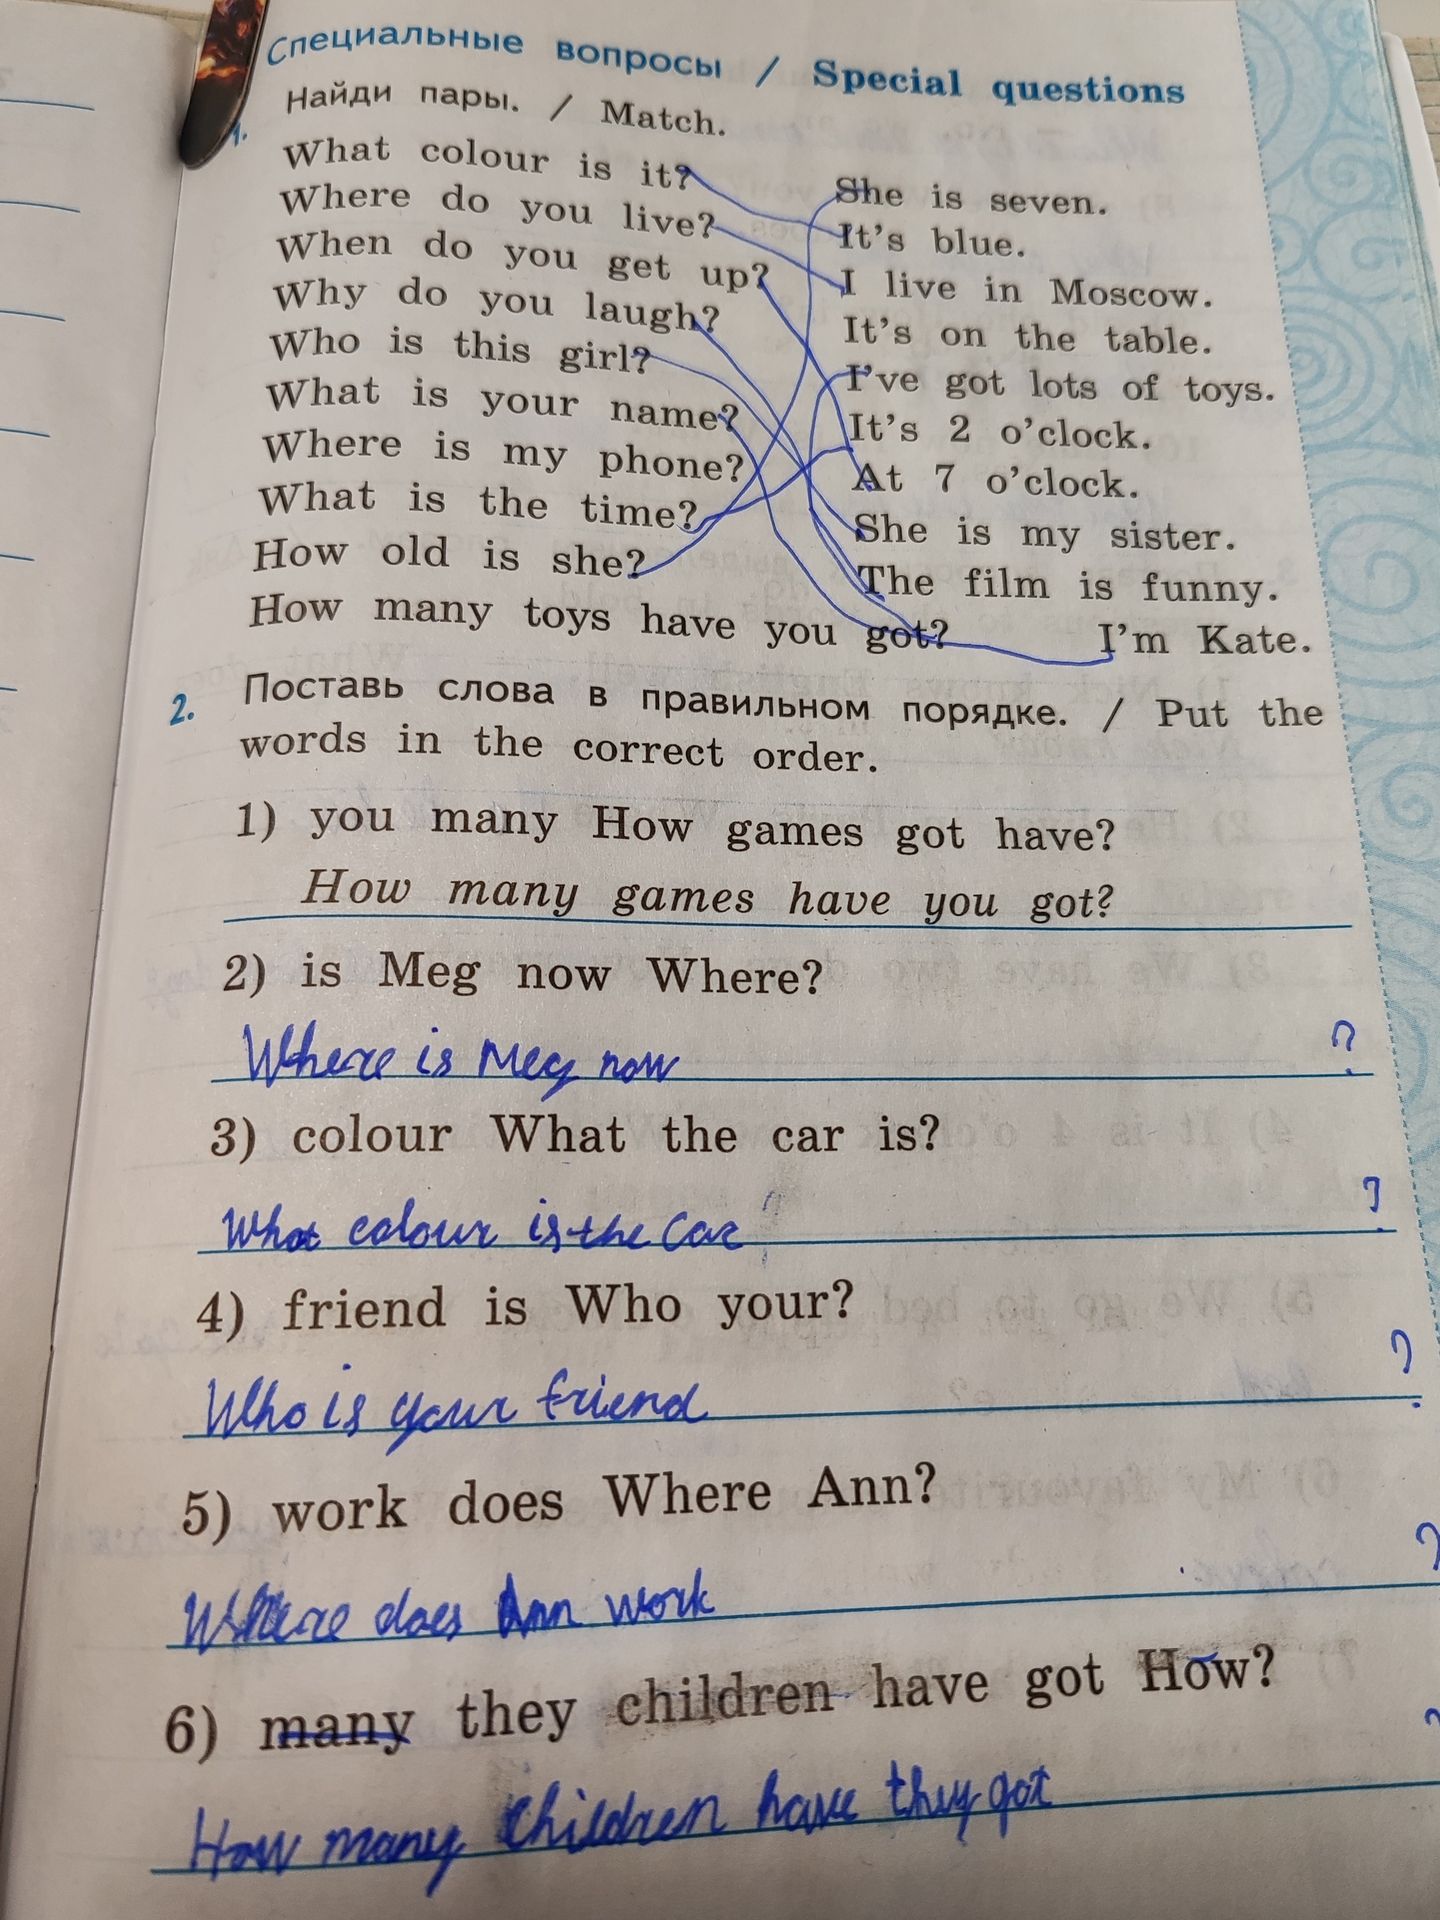 Специальные вопросы / Special questions
1. Найди пары. / Match.
What colour is it?
Where do you live?
When do you get up?
Why do you laugh?
Who is this girl?
What is your name?
Where is my phone?
What is the time?
How old is she?
How many toys have you got?
She is seven.
It's blue.
I live in Moscow.
It's on the table.
I've got lots of toys.
It's 2 o'clock.
At 7 o'clock.
She is my sister.
The film is funny.
I'm Kate.
2. Поставь слова в правильном порядке. / Put the
words in the correct order.
1) you many How games got have?
How many games have you got?
2) is Meg now Where?
Where is Meg now ?
3) colour What the car is?
What colour is the car ?
4) friend is Who your?
Who is your friend ?
5) work does Where Ann?
Where does Ann work ?
6) many they children have got How?
How many children have they got ?